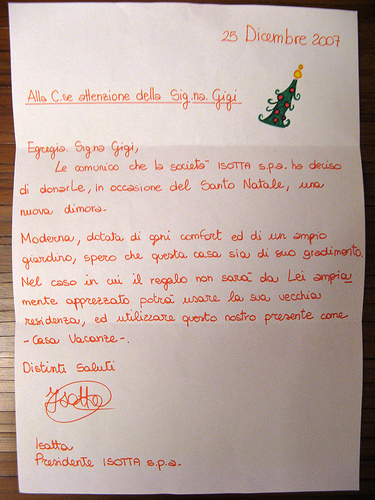 25 Dicembre 2007
Alla C.se attenzione della Sig.na. Gigi
Egregia Sig.na Gigi,
Le comunico che la società ISOTTA s.p.a. ha deciso
di donarLe, in occasione del Santo Natale, una
nuova dimora.
Moderna, dotata di ogni comfort ed di un ampio
giardino, spero che questa casa sia di suo gradimento.
Nel caso in cui il regalo non sarà da Lei ampia
mente apprezzato potrà usare la sua vecchia
residenza, ed utilizzare questo nostro presente come
-Casa Vacanze-.
Distinti Saluti
Isotta
Isotta
Presidente ISOTTA s.p.a.